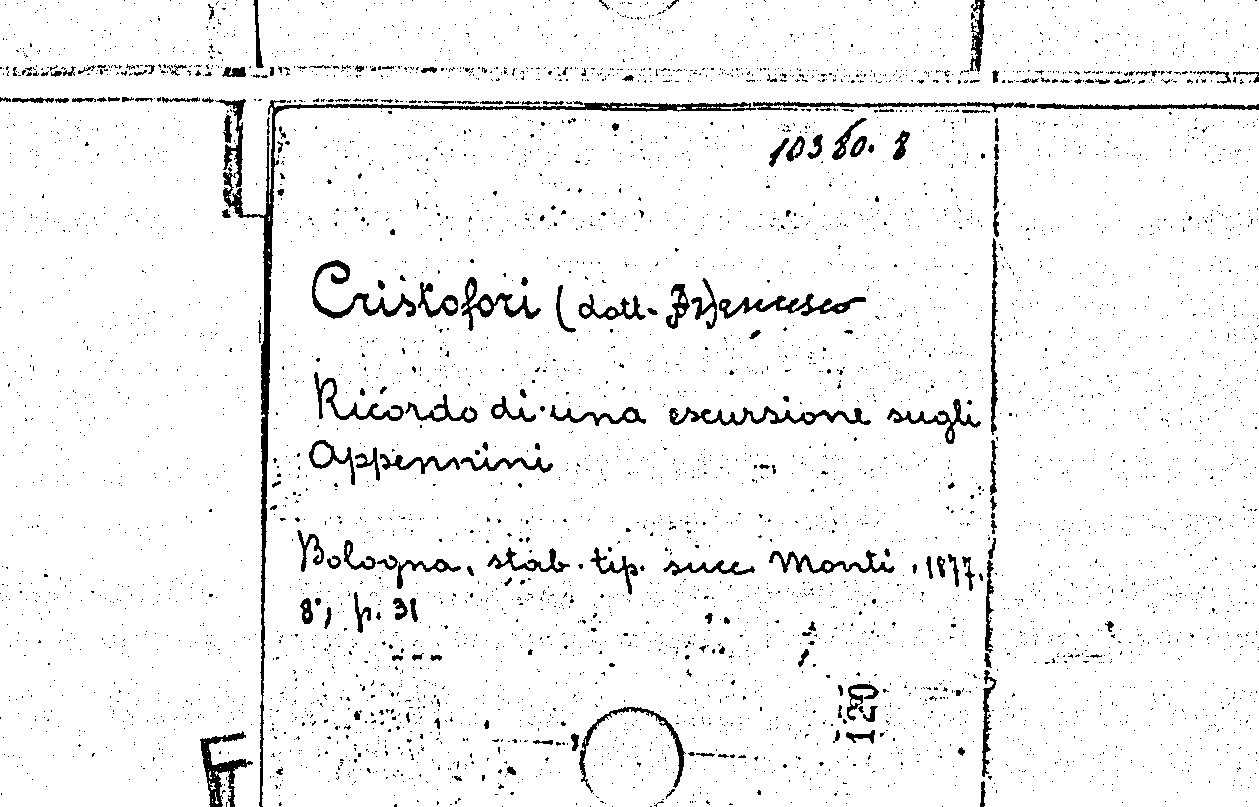 10380. 8
Cristofori (dott. Francesco
Ricordo di una escursione sugli
Appennini
Bologna, stab. tip. succ. Monti, 1877.
8°, p. 31
120